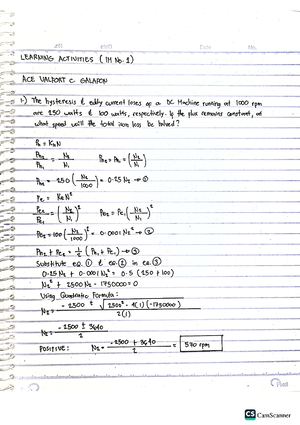 Date No.
LEARNING ACTIVITIES (IM No. 1)
ACE VALFORT C. GALAPON
1.) The hysteresis & eddy current loses of a DC Machine running at 1000 rpm
are 250 watts & 100 watts, respectively. If the flux remains constant, at
what speed will the total iron loss be halved?
Ph = KhN
Ph2/Ph1 = N2/N1 Ph2 = Ph1 (N2/N1)
Ph2 = 250 (N2/1000) = 0.25 N2 → ①
Pe = KeN²
Pe2/Pe1 = (N2/N1)² Pe2 = Pe1 (N2/N1)²
Pe2 = 100 (N2/1000)² = 0.0001 N2² → ②
Ph2 + Pe2 = 1/2 (Ph1 + Pe1) → ③
Substitute eq. ① & eq. ② in eq. ③
0.25 N2 + 0.0001 N2² = 0.5 (250 + 100)
N2² + 2500 N2 - 1750000 = 0
Using Quadratic Formula:
N2 = -2500 ± √2500² - 4(1)(-1750000) / 2(1)
N2 = -2500 ± 3640 / 2
POSITIVE: N2 = -2500 + 3640 / 2 = 570 rpm
CS CamScanner